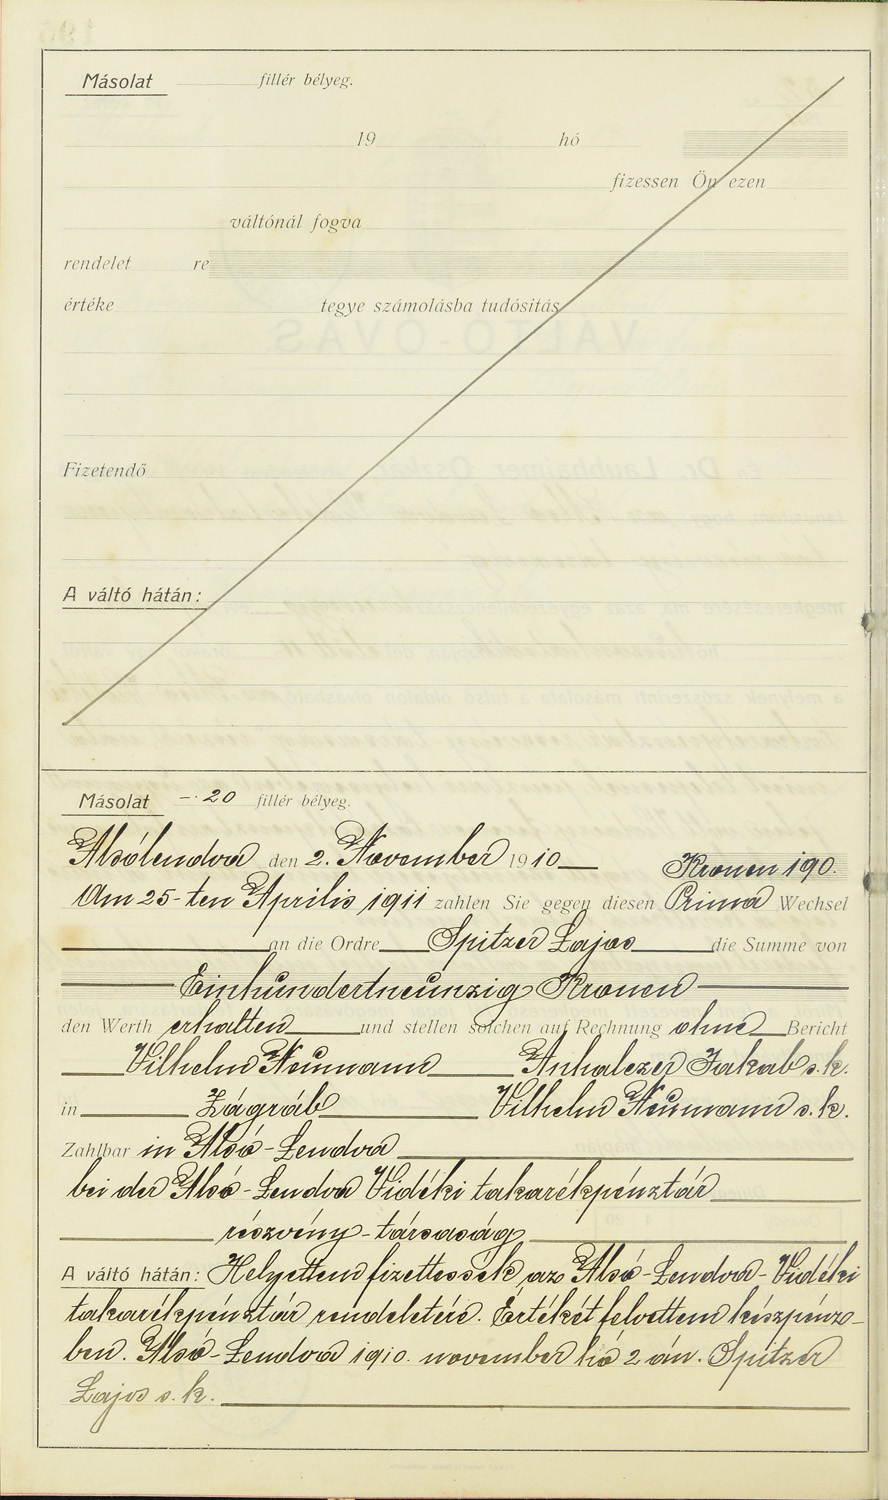 Másolat fillér bélyeg.
19 hó
fizessen Ön ezen
váltónál fogva
rendelet re
értéke tegye számolásba tudósitás
Fizetendő
A váltó hátán:
Másolat —·20 fillér bélyeg.
Alsólendva den 2. November 1910 Kronen 190.
Am 25-ten Aprilis 1911 zahlen Sie gegen diesen Prima Wechsel
an die Ordre Spitzer Lajos die Summe von
Einhundertneunzig Kronen
den Werth erhalten und stellen solchen auf Rechnung ohne Bericht
Vilhelm Neumann Anhalczer Jakab s. k.
in Zágráb Vilhelm Neumann s. k.
Zahlbar in Alsó-Lendva
bei der Alsó-Lendva Vidéki takarékpénztár
részvény-társaság
A váltó hátán: Helyettem fizettessék az Alsó-Lendva-Vidéki
takarékpénztár rendeletére. Értékét felvettem készpénz-
ben. Alsó-Lendva 1910. november hó 2 án. Spitzer
Lajos s. k.